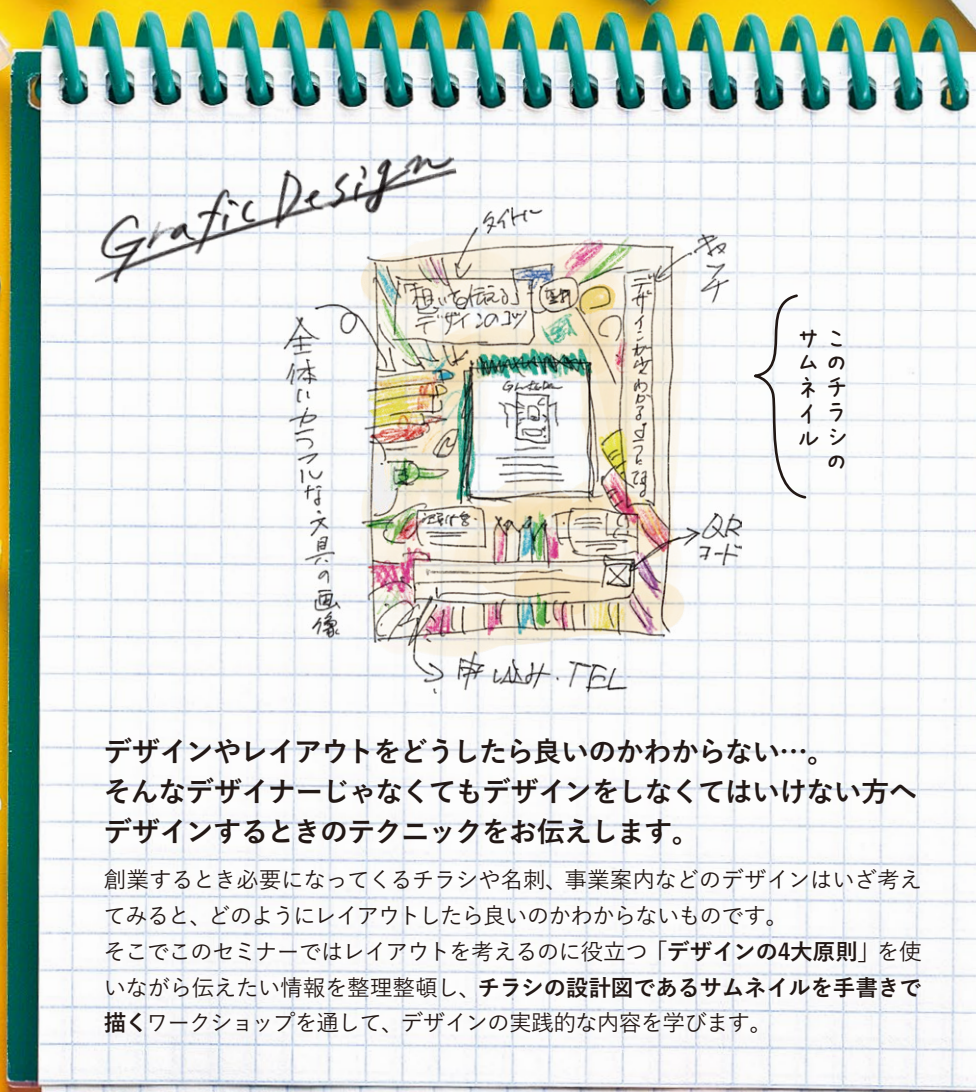 Grafic Design
タイトル
キャッチ
「想いを伝える」
デザインのコツ
全体にカラフルな文具の画像
このチラシの
サムネイル
QR
コード
申し込み・TEL
デザインやレイアウトをどうしたら良いのかわからない…。
そんなデザイナーじゃなくてもデザインをしなくてはいけない方へ
デザインするときのテクニックをお伝えします。
創業するとき必要になってくるチラシや名刺、事業案内などのデザインはいざ考え
てみると、どのようにレイアウトしたら良いのかわからないものです。
そこでこのセミナーではレイアウトを考えるのに役立つ「デザインの4大原則」を使
いながら伝えたい情報を整理整頓し、チラシの設計図であるサムネイルを手書きで
描くワークショップを通して、デザインの実践的な内容を学びます。